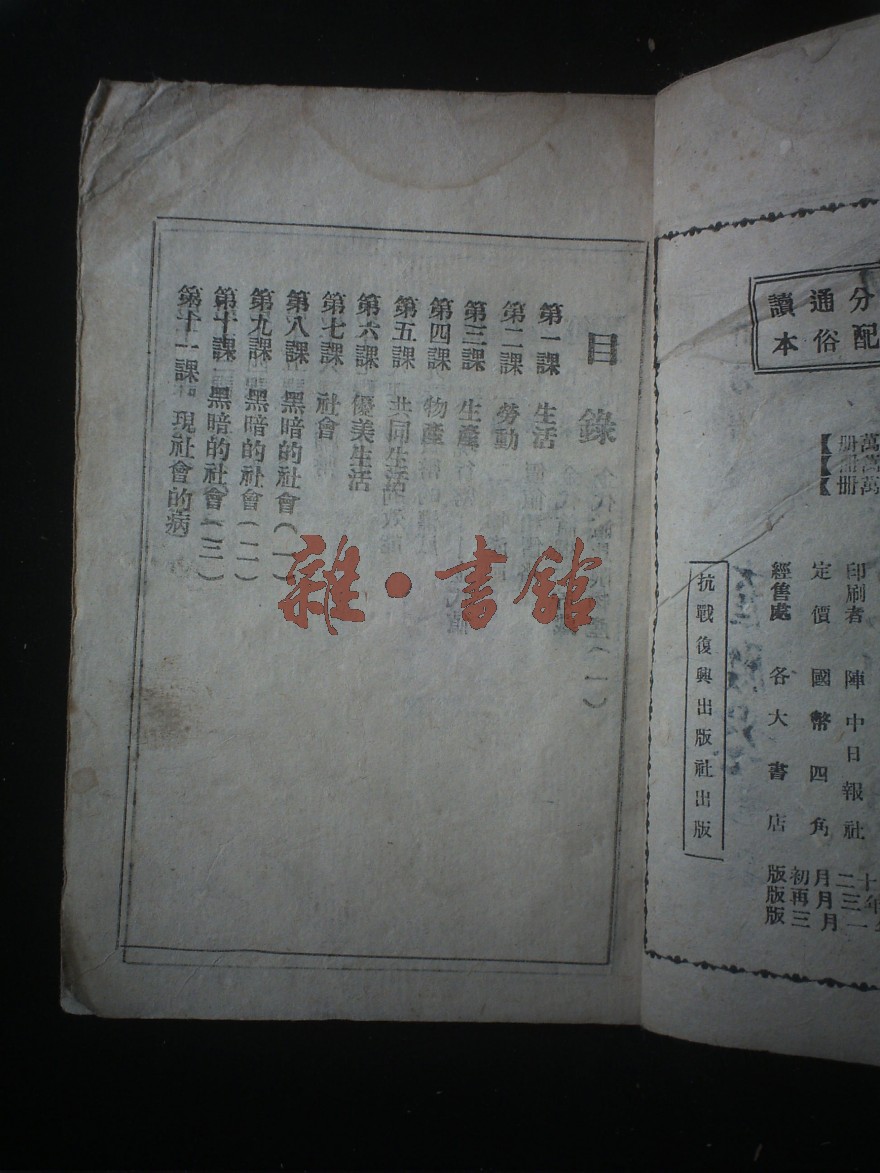 分配
通俗
讀本
萬册【
萬册【
萬册【
印刷者 陣中日報社
定價國幣四角
經售處 各大書店
十年
二月初版
三月再版
一月三版
抗戰復興出版社出版
目錄
第一課 生活
第二課 勞動
第三課 生產
第四課 物產
第五課 共同生活
第六課 優美生活
第七課 社會
第八課 黑暗的社會(一)
第九課 黑暗的社會(二)
第十課 黑暗的社會(三)
第十一課 現社會的病
雜·書館